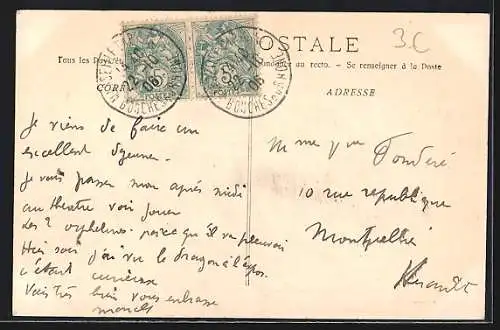 POSTALE
3.C
Tous les Pays
au recto. - Se renseigner à la Poste
CORR
ADRESSE
MARSEILLE
22-10
06
BOUCHES-DU-RHONE
BOUCHES-DU-RHONE
06
Je viens de faire un
excellent dejeuner.
Je vais passer mon après midi
au theatre voir jouer
Les 2 orphelines parce qu'il va pleuvoir
Hier soir j'ai vu le dragon à l'
c'était curieux
Vais très bien vous embrasse
marcel
Mme Fonderé
10 rue republique
Montpellier
Herault